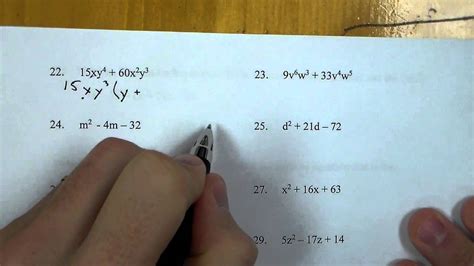 22. 15xy⁴ + 60x²y³
15xy³(y +
23. 9v⁶w³ + 33v⁴w⁵
24. m² - 4m – 32
25. d² + 21d – 72
27. x² + 16x + 63
29. 5z² – 17z + 14